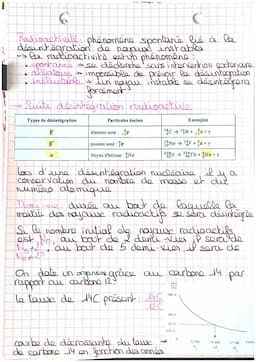 Radioactivité : phénomène spontané lié à la
désintégration de noyaux instables
→ la radioactivité est un phénomène :
• spontané → se déclenche sans intervention extérieure
• aléatoire → impossible de prévoir la désintégration
• inéluctable → un noyau instable se désintégrera
forcément
→ Suite désintégration radioactive
Types de désintégration Particules émises Exemples
β⁻ électron noté
β⁺ positon noté
α Noyau d'hélium
Lors d'une désintégration nucléaire il y a
conservation du nombre de masse et du
numéro atomique
durée au bout de laquelle la
moitié des noyaux radioactifs se sera désintégrée
Si le nombre initial de noyaux radioactifs
est N₀, au bout de 2 demi-vies il sera de
au bout de 5 demi-vies il sera de
On date un organisme grâce au carbone 14 par
rapport au carbone 12
le taux de 14C présent 14C
12C
courbe de décroissante du taux →
de carbone 14 en fonction des années